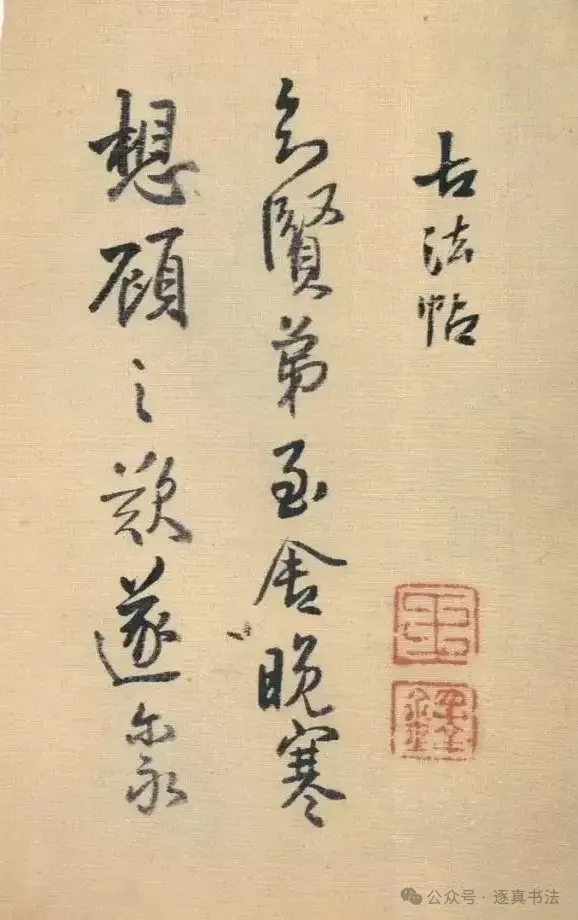 古法帖
知賢弟至舍晚寒
想顧之歎遂尔永
公众号 · 逐真书法